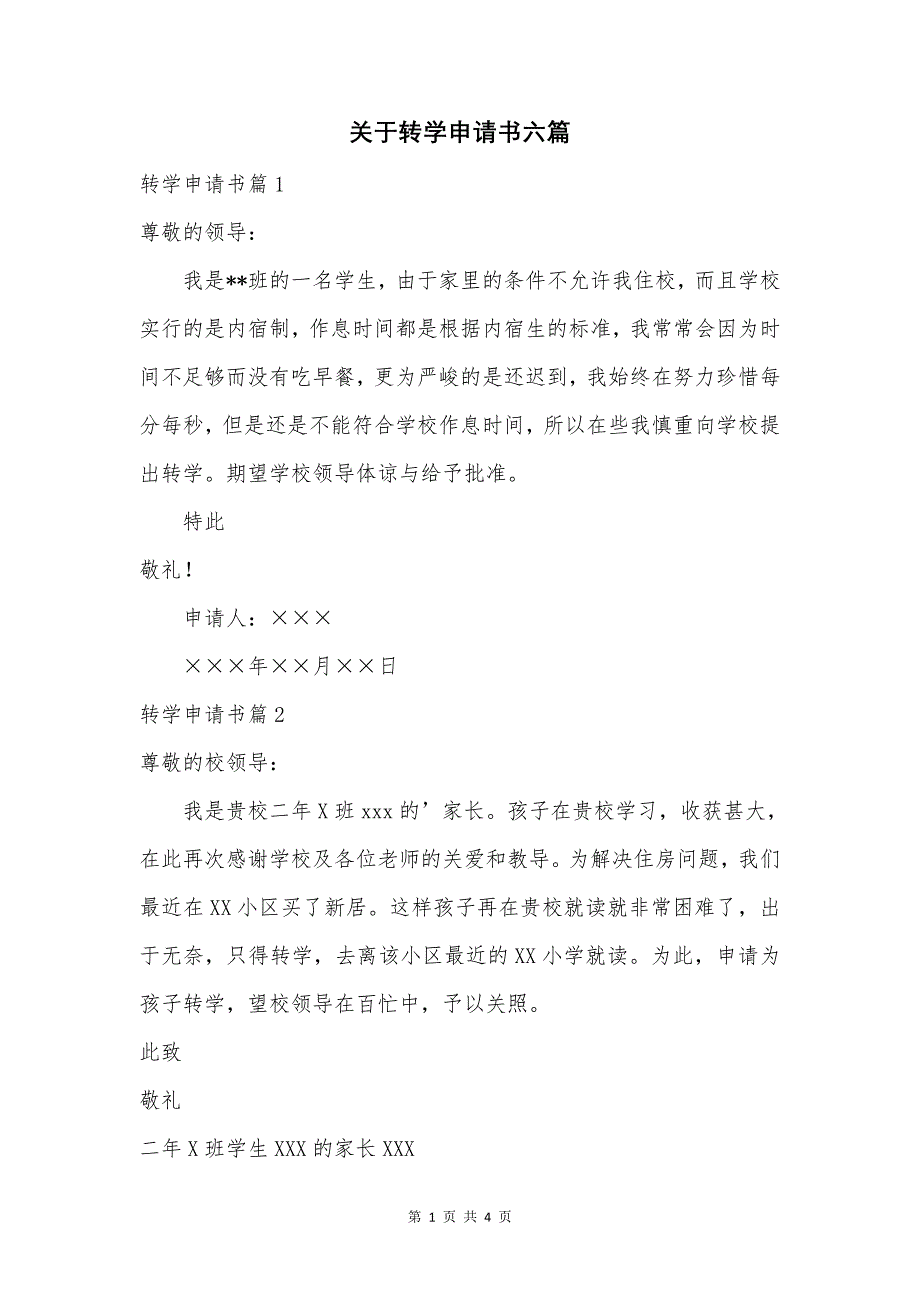 关于转学申请书六篇
转学申请书篇1
尊敬的领导:
我是**班的一名学生，由于家里的条件不允许我住校，而且学校
实行的是内宿制，作息时间都是根据内宿生的标准，我常常会因为时
间不足够而没有吃早餐，更为严峻的是还迟到，我始终在努力珍惜每
分每秒，但是还是不能符合学校作息时间，所以在些我慎重向学校提
出转学。期望学校领导体谅与给予批准。
特此
敬礼!
申请人：×××
×××年××月××日
转学申请书篇2
尊敬的校领导:
我是贵校二年X班xxx的’家长。孩子在贵校学习，收获甚大，
在此再次感谢学校及各位老师的关爱和教导。为解决住房问题，我们
最近在XX小区买了新居。这样孩子再在贵校就读就非常困难了，出
于无奈，只得转学，去离该小区最近的XX小学就读。为此，申请为
孩子转学，望校领导在百忙中，予以关照。
此致
敬礼
二年X班学生XXX的家长XXX
第 1 页 共 4 页